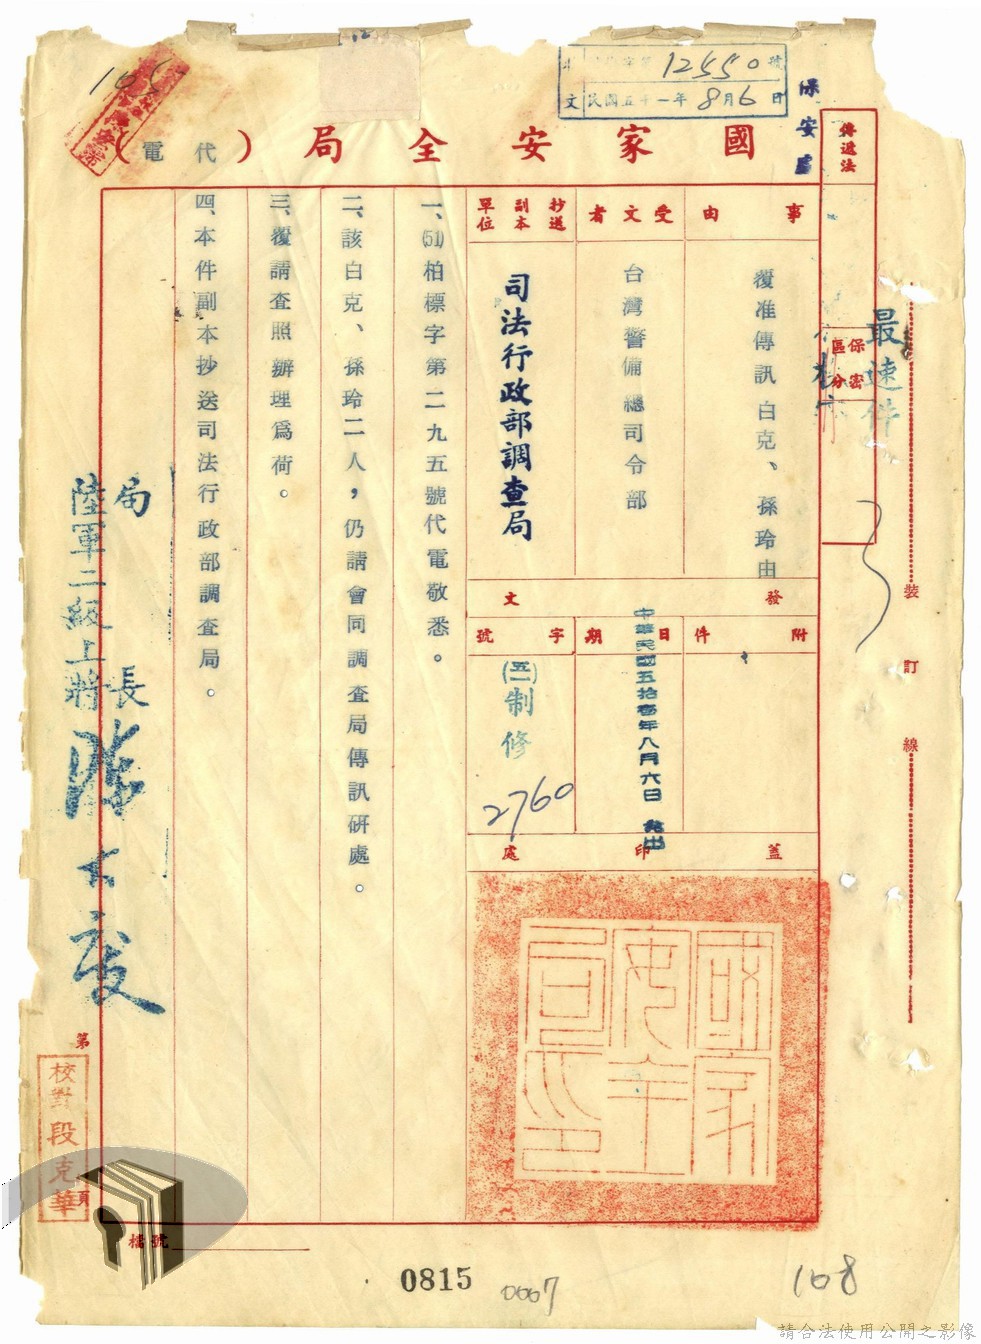 12550號
民國五十一年8月6日
保安處
國家安全局(代電)
傳遞法
最速件
保密區分
事由
覆准傳訊白克、孫玲由
受文者
台灣警備總司令部
抄送副本單位
司法行政部調查局
發文
附件
日期
中華民國五拾壹年八月六日
字號
(五一)制修
2760
蓋印處
國家安全局印
一、(51)柏標字第二九五號代電敬悉。
二、該白克、孫玲二人，仍請會同調查局傳訊研處。
三、覆請查照辦理為荷。
四、本件副本抄送司法行政部調查局。
局長
陸軍二級上將陳大慶
裝訂線
第
頁
校對段克華
檔號
0815
0007
108
請合法使用公開之影像